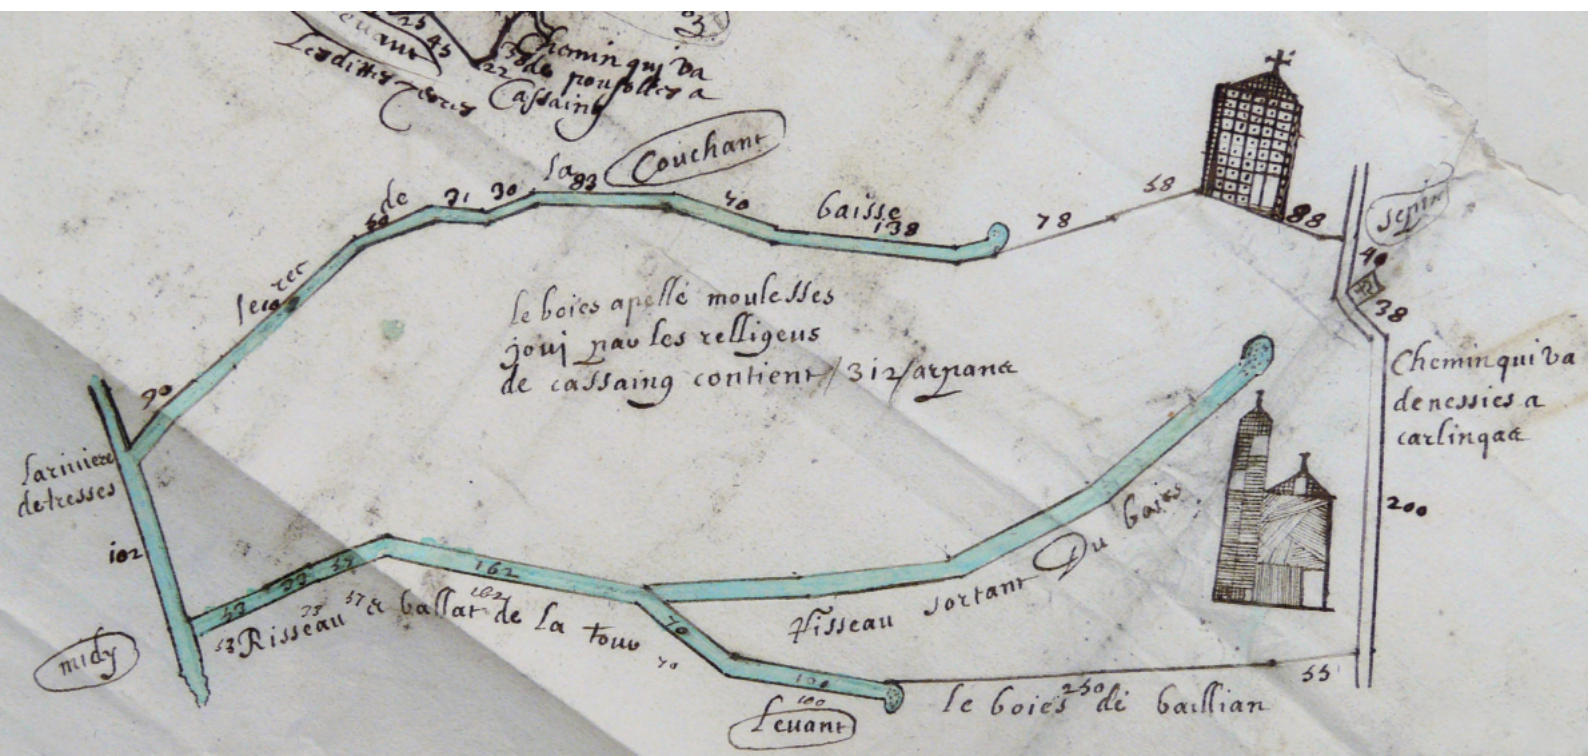 25 45
Levant
Lesdittes Terres
22 38
Chemin qui va
de pousolles a
Cassaing
Couchant
90
Le rec
de
71
30
la
83
70
baisse
138
78
58
88
septn
40
38
le boies apellé moulesses
joui par les relligeus
de cassaing contient /312/ arpans
Chemin qui va
de nessies a
carlinqas
200
Lariviere
de tresses
102
midy
53
33
162
53 Risseau 33 57 & ballat 162 de la tour
70
70
100
100
Levant
Risseau sortant Du boies
le boies 250 de baillian
55